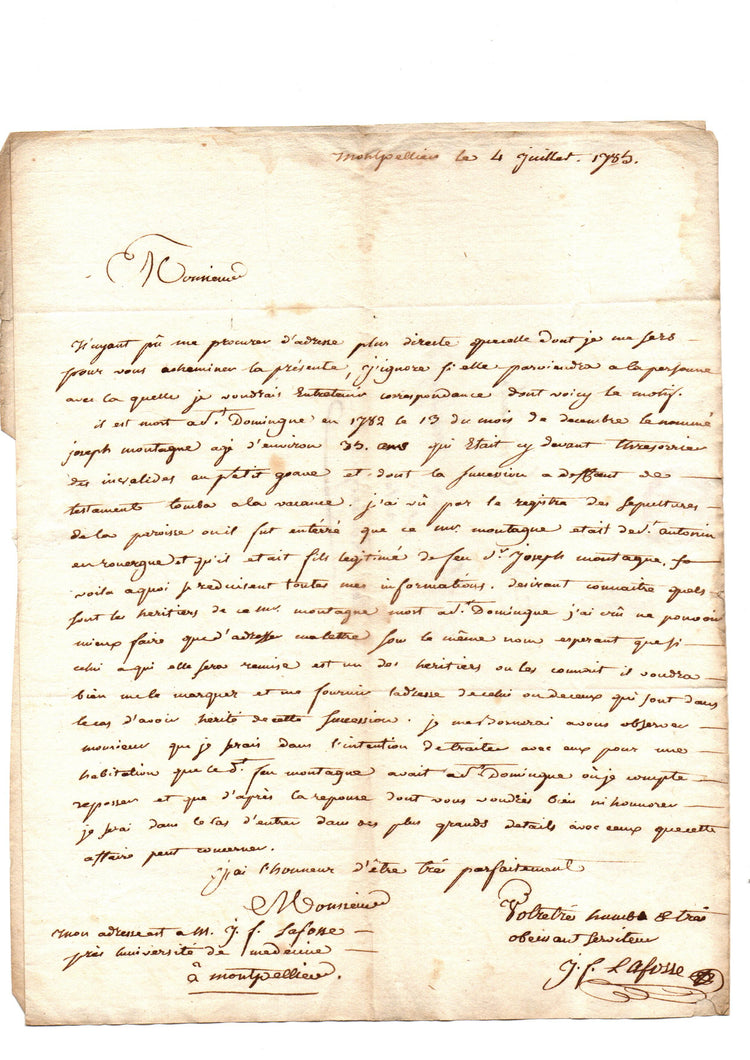 Montpellier le 4 Juillet. 1785.
Monsieur
N'ayant pû me procurer d'adresse plus directe que celle dont je me sers
pour vous acheminer la présente, j'ignore si elle parviendra a la personne
avec la quelle je voudrais Entretenir correspondance dont voicy le motif.
il est mort a St. Domingue en 1782 le 13 du mois de decembre le nommé
joseph montagne agé d'environ 35. ans qui Etait cy devant thresorier
des invalides au petit goave et dont la sucession a deffaut de
testament tomba a la vacance. j'ai vû par le registre des sepultures
de la paroisse ou il fut entérré que ce mr. montagne etait de St. antonin
en rouergue et qu'il etait fils legitime de feu Sr. Joseph montagne,
voila a quoi se reduisent toutes mes informations. desirant connaitre quels
sont les heritiers de ce mr. montagne mort a St. Domingue j'ai crû ne pouvoir
mieux faire que d'adresser ma lettre sous le même nom esperant que si
celui a qui elle sera remise est un des heritiers ou les connait il voudra
bien me le marquer et me fournir l'adresse de celui ou de ceux qui sont dans
le cas d'avoir herité de cette succession. je me bornerai a vous observer
monsieur que je serais dans l'intention de traiter avec eux pour une
habitation que le dt. feu montagne avait a St. Domingue où je compte
repasser et que d'après la reponse dont vous voudrés bien m'honnorer
je serai dans le cas d'entrer dans des plus grands details avec ceux que cette
affaire peut concerner.
j'ai l'honneur d'être tré parfaitement
Monsieur
Votre tré humble & tré
obeissant serviteur
J. f. Lafosse
mon adresse est a M. J. f. Lafosse
près l'université de medecine
à montpellier.